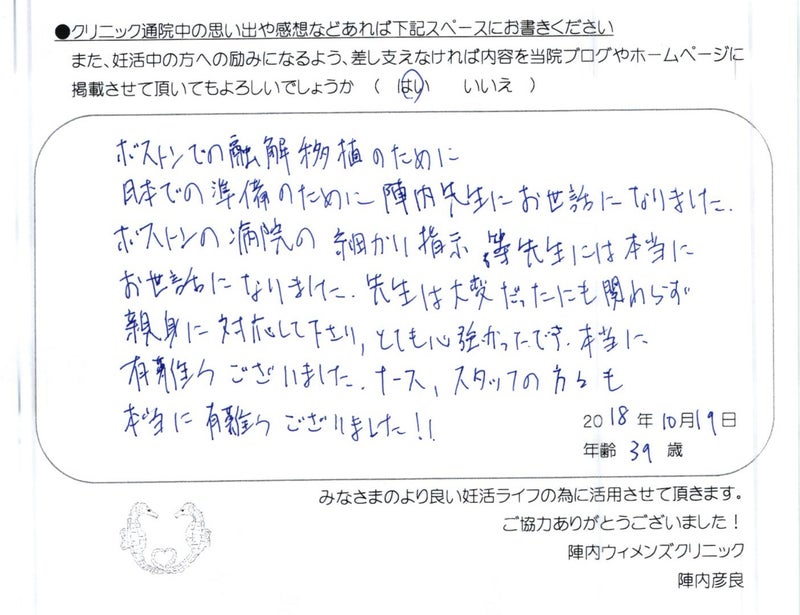 ●クリニック通院中の思い出や感想などあれば下記スペースにお書きください
また、妊活中の方への励みになるよう、差し支えなければ内容を当院ブログやホームページに
掲載させて頂いてもよろしいでしょうか ( はい いいえ )
ボストンでの融解移植のために
日本での準備のために陣内先生にお世話になりました.
ボストンの病院の細かい指示等先生には本当に
お世話になりました. 先生は大変だったにも関わらず
親身に対応して下さり, とても心強かったです. 本当に
有難う ございました. ナース, スタッフの方々も
本当に有難う ございました!!
2018年10月19日
年齢 39 歳
みなさまのより良い妊活ライフの為に活用させて頂きます。
ご協力ありがとうございました！
陣内ウィメンズクリニック
陣内彦良